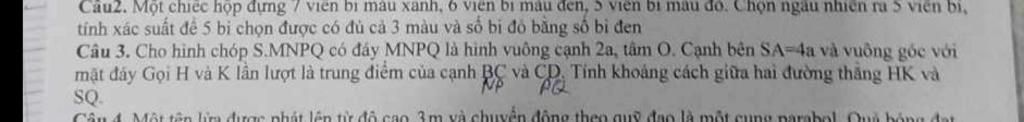 Câu2. Một chiếc hộp đựng 7 viên bi màu xanh, 6 viên bi màu đen, 5 viên bi màu đỏ. Chọn ngẫu nhiên ra 5 viên bi,
tính xác suất để 5 bi chọn được có đủ cả 3 màu và số bi đỏ bằng số bi đen
Câu 3. Cho hình chóp S.MNPQ có đáy MNPQ là hình vuông cạnh 2a, tâm O. Cạnh bên SA=4a và vuông góc với
mặt đáy Gọi H và K lần lượt là trung điểm của cạnh BC và CD. Tính khoảng cách giữa hai đường thẳng HK và
NP PQ
SQ.
Câu 4. Một tên lửa được phát lên từ độ cao 3m và chuyển động theo quỹ đạo là một cung parabol. Quả bóng đạt